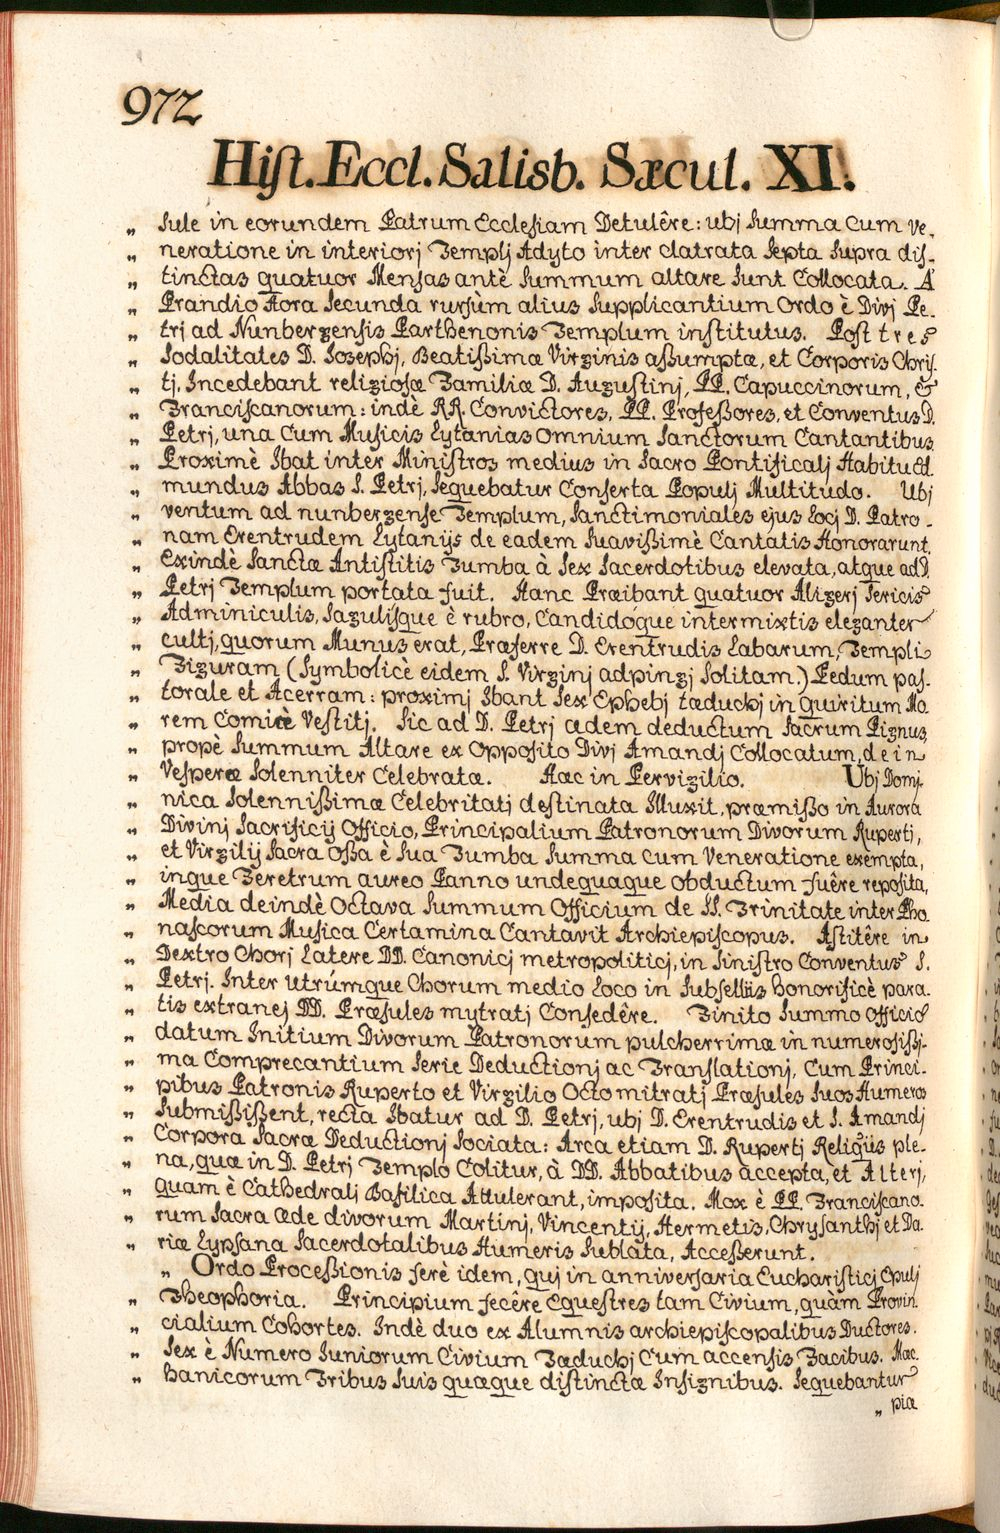 972
Hist. Eccl. Salisb. Sæcul. XI.
„ sule in eorundem Patrum Ecclesiam Detulêre: ubj summa cum ve-
„ neratione in interiorj Templj Adyto inter clatrata septa supra dis-
„ tinctas quatuor Mensas antè summum altare sunt Collocata. A
„ Prandio Hora secunda rursùm alius supplicantium Ordo è Divj Pe-
„ trj ad Nunbergensis Parthenonis Templum institutus. Post tres
„ sodalitates D. Josephj, Beatißimæ Virginis aßumptæ, et Corporis Chris-
„ tj, Incedebant religiosæ Familiæ D. Augustinj, PP. Capuccinorum, &
„ Franciscanorum: indè RR. Convictores, PP. Profeßores, et Conventus D.
„ Petrj, una cum Musicis Lytanias omnium Sanctorum Cantantibus.
„ Proximè Ibat inter Ministros medius in Sacro Pontificalj Habitu Ed-
„ mundus Abbas S. Petrj, sequebatur Conserta Populj Multitudo. Ubj
„ ventum ad nunbergense Templum, Sanctimoniales ejus locj D. Patro-
„ nam Erentrudem Lytanijs de eadem suavißimè Cantatis Honorarunt.
„ Exindè Sanctæ Antistitis Tumba à sex Sacerdotibus elevata, atque ad D.
„ Petrj Templum portata fuit. Hanc Præibant quatuor Aligerj sericis
„ Adminiculis, Sagulisque è rubro, Candidóque intermixtis eleganter
„ cultj, quorum Munus erat, Præferre D. Erentrudis Labarum, Templi
„ Figuram (symbolicè eidem S. Virginj adpingj solitam.) Pedum pas-
„ torale et Acerram: proximj Ibant sex Ephebj tæduchj in quiritum Mo-
„ rem Comicè Vestitj. Sic ad D. Petrj ædem deductum Sacrum Pignus,
„ propè summum Altare ex Opposito Divj Amandj Collocatum, dein
„ Vesperæ solenniter Celebratæ. Hac in Pervigilio. Ubj Domj-
„ nica solennißimæ Celebritatj destinata Illuxit, præmißo in Aurora
„ Divinj Sacrificij Officio, Principalium Patronorum Divorum Rupertj,
„ et Virgilij sacra oßa è sua Tumba summa cum Veneratione exempta,
„ inque Feretrum aureo Panno undequaque obductum fuêre reposita,
„ Media deindè Octava summum Officium de SS. Trinitate inter Pho-
„ nascorum Musica Certamina Cantavit Archiepiscopus. Astitêre in
„ Dextro Chorj Latere DD. Canonicj metropoliticj, in sinistro Conventus S.
„ Petrj. Inter utrúmque Chorum medio loco in subsellijs honorificè para-
„ tis extranej DD. Præsules mytratj Consedêre. Finito summo officio
„ datum Initium Divorum Patronorum pulcherrima in numerosißj-
„ ma Comprecantium Serie Deductionj ac Translationj, Cum Princi-
„ pibus Patronis Ruperto et Virgilio Octo mitratj Præsules suos Humeros
„ submisißent, recta Ibatur ad D. Petrj, ubj D. Erentrudis et S. Amandj
„ Corpora sacræ Deductionj sociata: Arca etiam D. Rupertj Religijs ple-
„ na, quæ in D. Petrj Templo Colitur, à DD. Abbatibus accepta, et Alterj,
„ quam è Cathedralj Basilica Attulerant, imposita. Mox è PP. Franciscano-
„ rum sacra Æde divorum Martinj, Vincentij, Hermetis, Chrysanthj et Da-
„ riæ Lypsana sacerdotalibus Humeris sublata, Acceßerunt.
„ Ordo Proceßionis ferè idem, quj in anniversaria Eucharisticj Epulj
„ Theophoria. Principium fecêre Equestres tam Civium, quàm Provin-
„ cialium Cohortes. Indè duo ex Alumnis archiepiscopalibus Ductores.
„ Sex è Numero Juniorum Civium Tæduchj Cum accensis Facibus. Mac-
„ hanicorum Tribus suis quæque distinctæ Insignibus. Sequebantur
„ pia